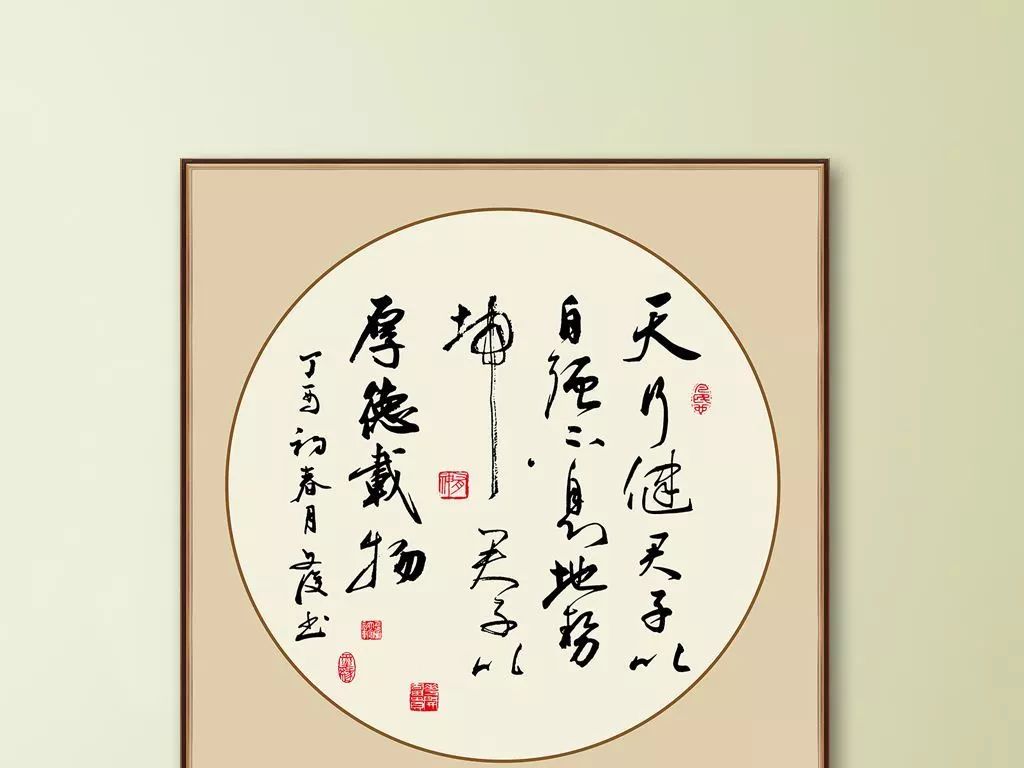 天行健君子以
自强不息地势
坤君子以
厚德载物
丁酉初春月文霞书